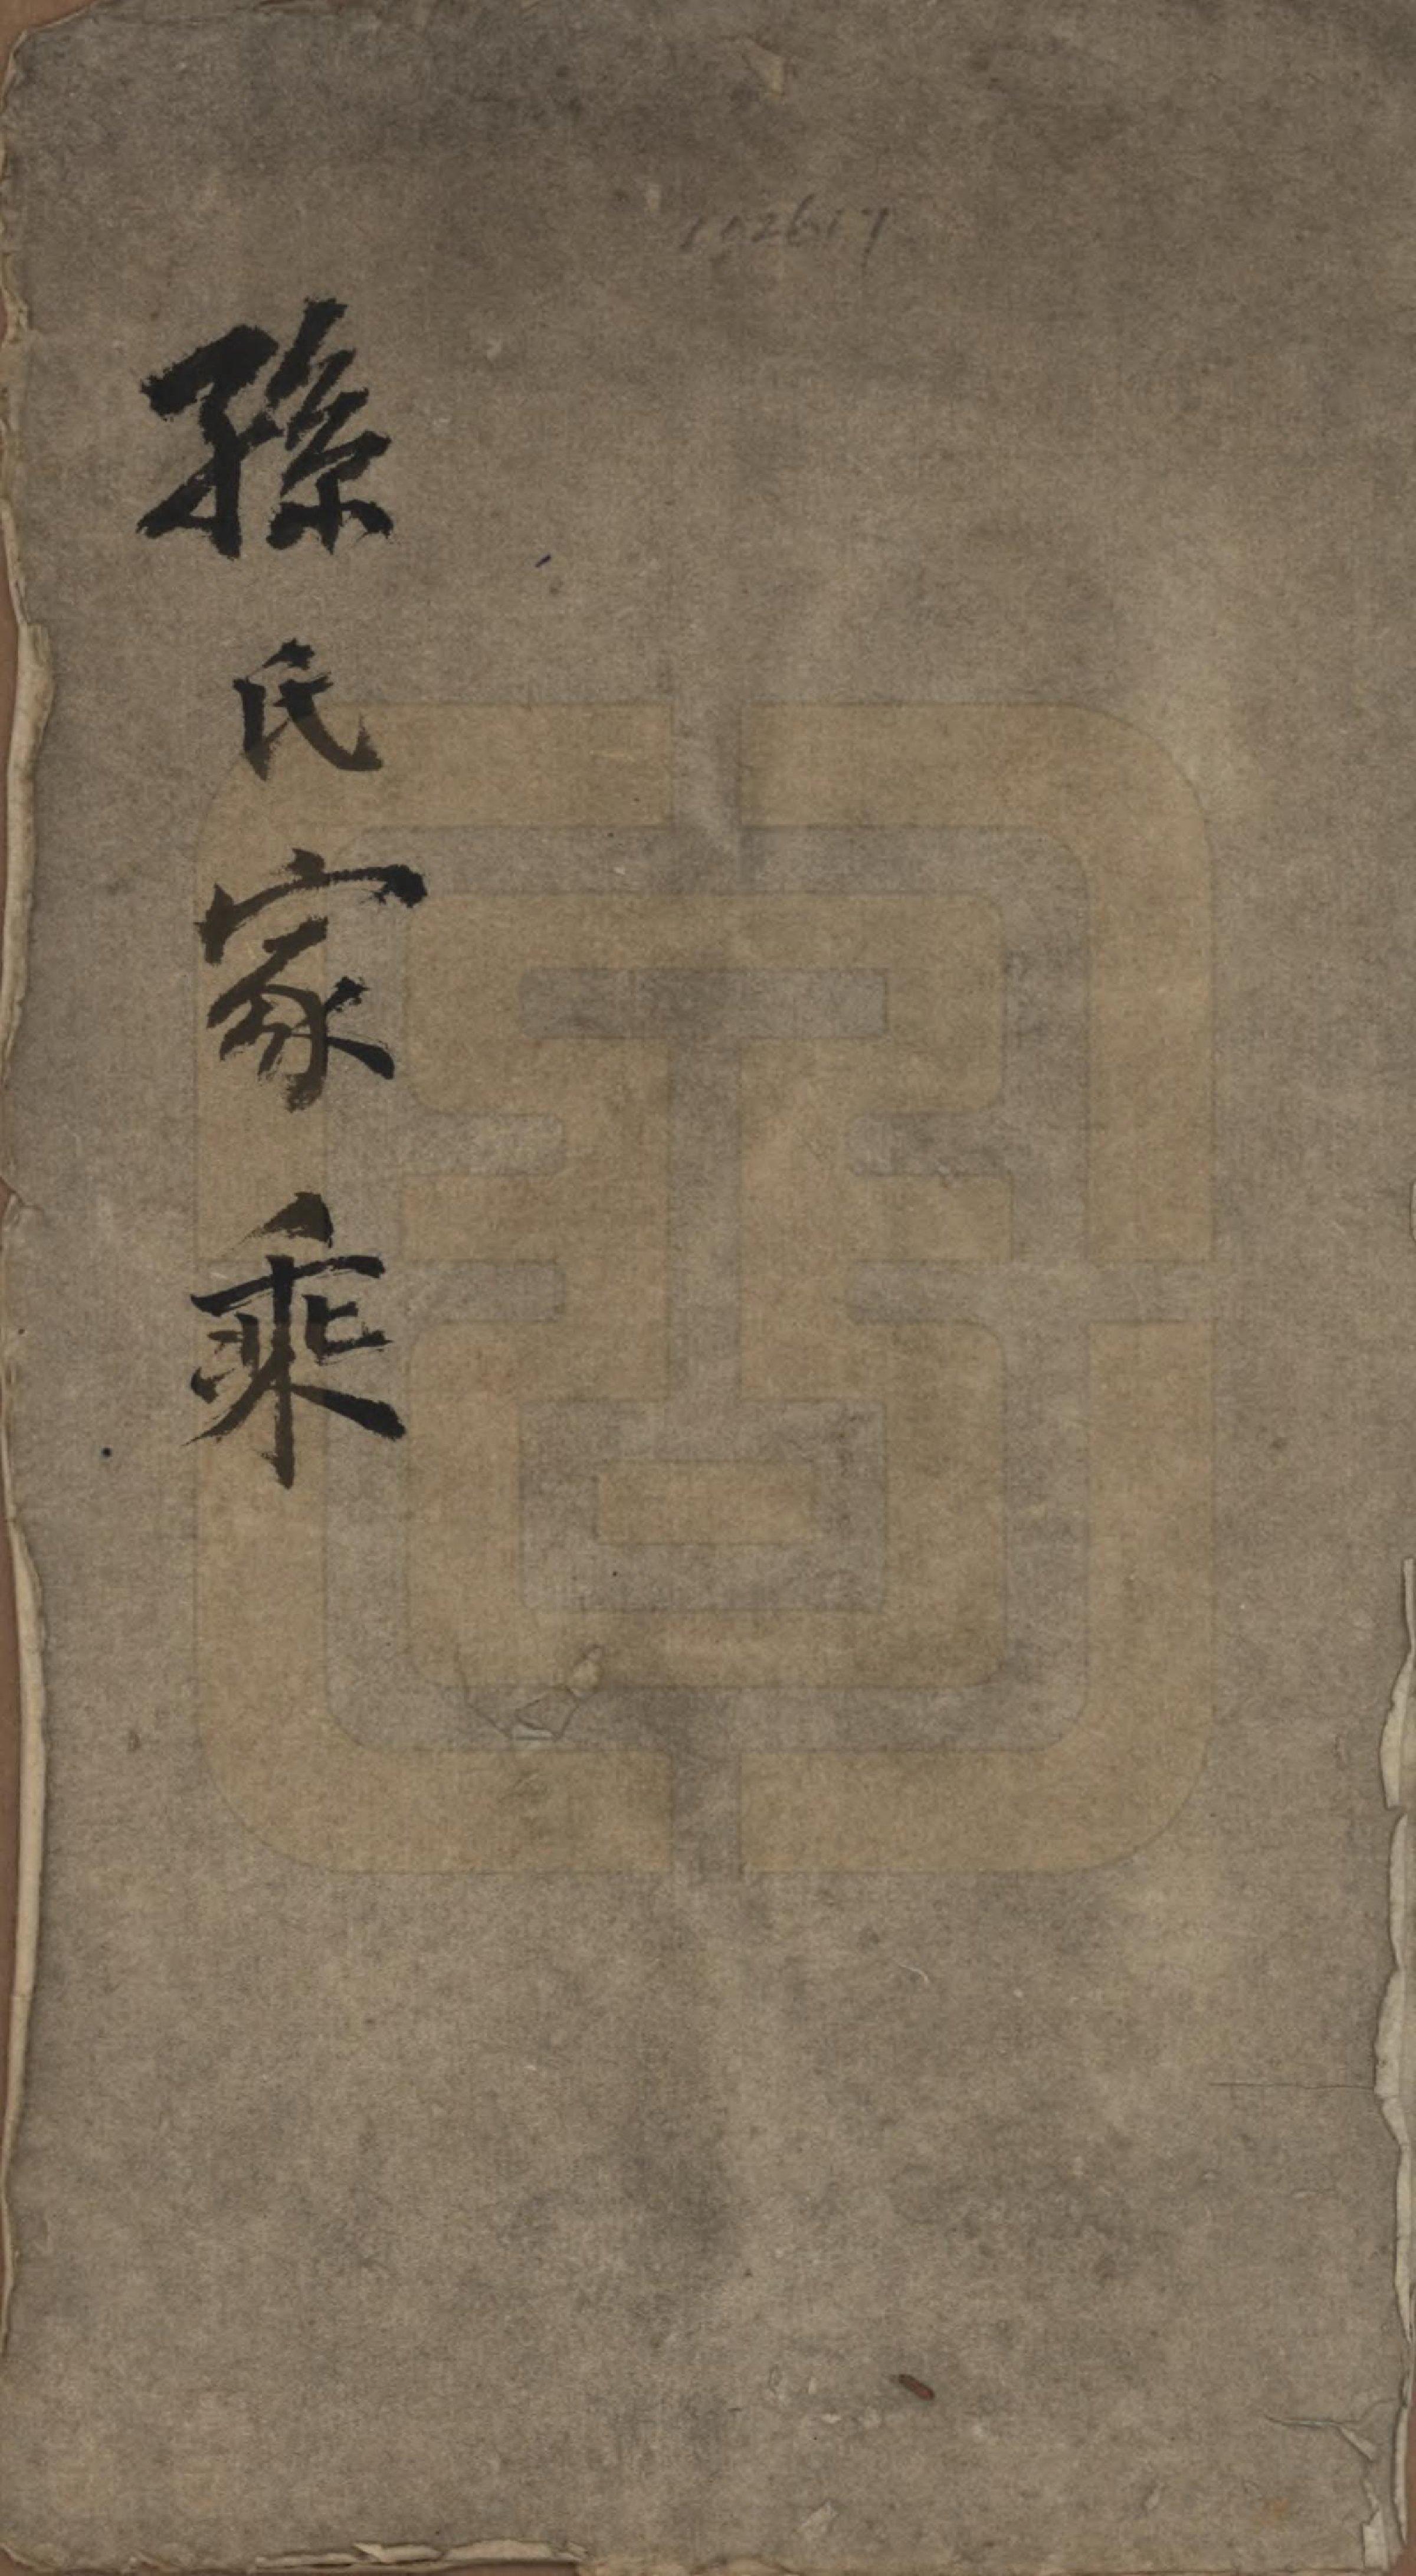 102617
孫氏家乘